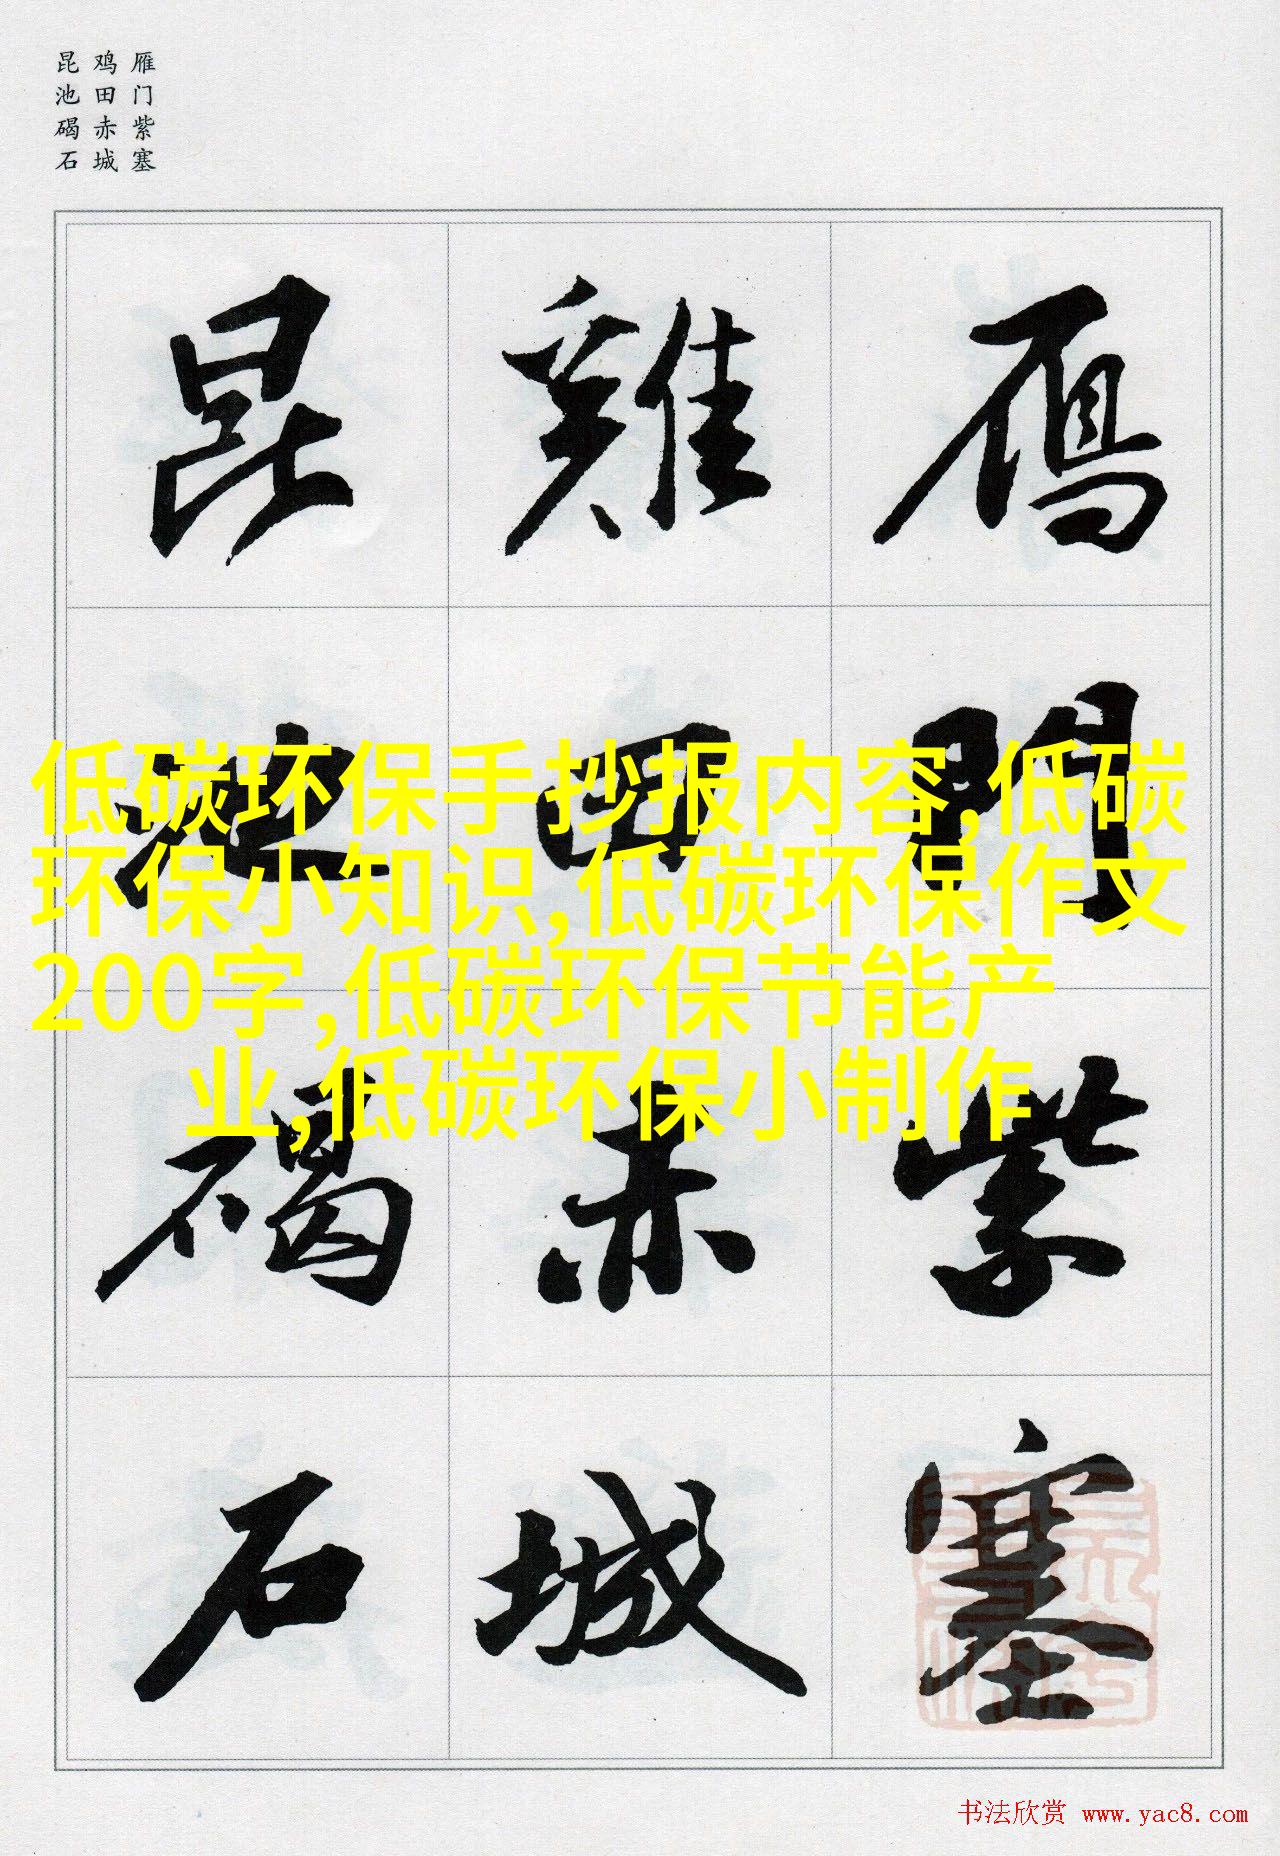 雁门紫塞
鸡田赤城
昆池碣石
雁門紫塞
雞田赤城
昆池碣石
低碳环保手抄报内容,低碳
环保小知识,低碳环保作文
200字,低碳环保节能产
业,低碳环保小制作
书法欣赏 www.yac8.com